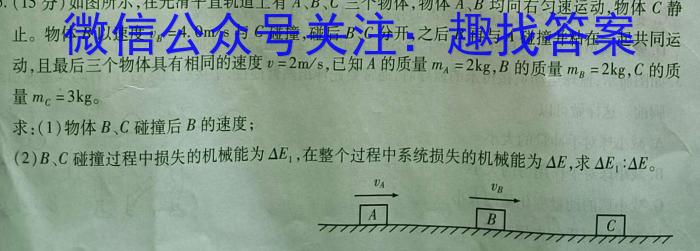 (15分)如图所示,在光滑平直轨道上有A、B、C三个物体,物体A、B均向右匀速运动,物体C静
止。物体B以速度v_B=4.0m/s与C碰撞,碰后B、C分开,之后 碰撞 在一起共同运
微信公众号关注:趣找答案
动,且最后三个物体具有相同的速度v=2m/s,已知A的质量m_A=2kg,B的质量m_B=2kg,C的质
量m_C=3kg。
求:(1)物体B、C碰撞后B的速度;
(2)B、C碰撞过程中损失的机械能为ΔE₁,在整个过程中系统损失的机械能为ΔE,求ΔE₁:ΔE。
v_A
v_B
A
B
C